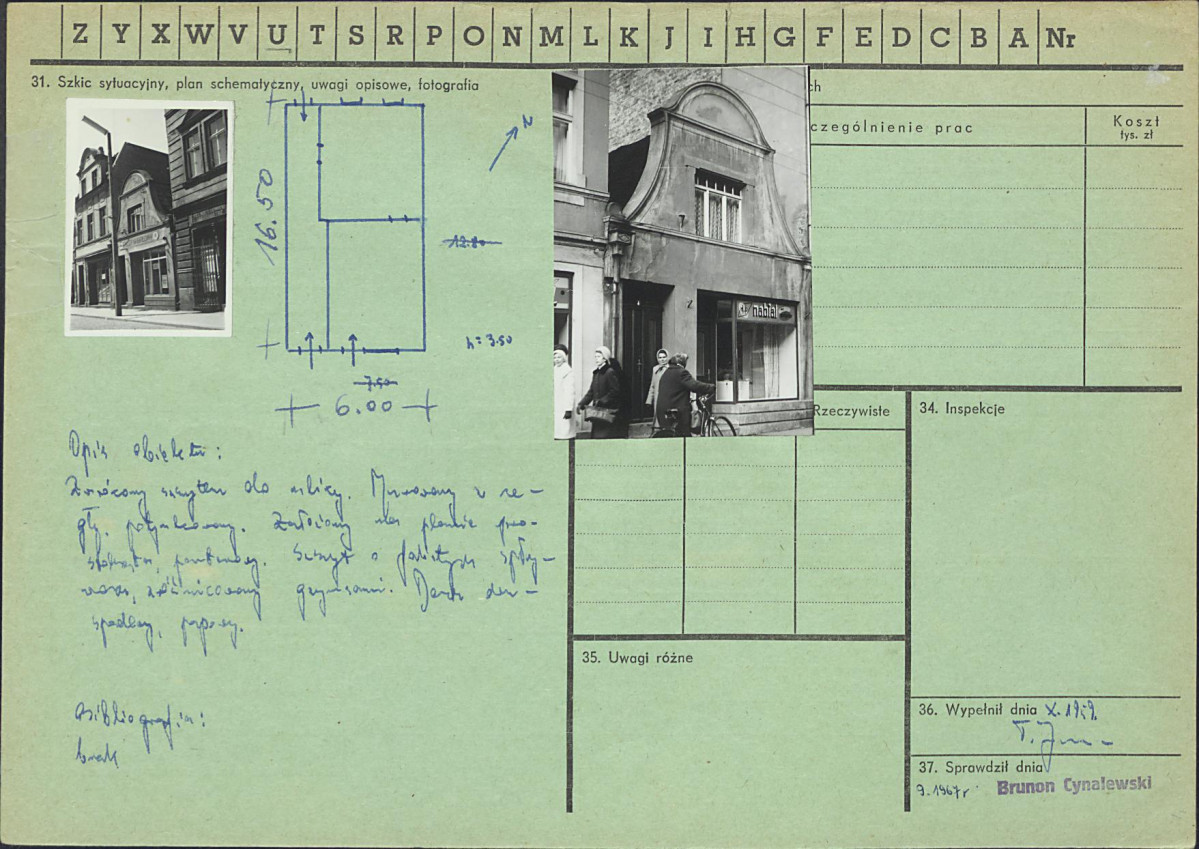 Z Y X W V U T S R P O N M L K J I H G F E D C B A Nr
31. Szkic sytuacyjny, plan schematyczny, uwagi opisowe, fotografia
ch
czególnienie prac
Koszt
tys. zł
N
16.50
12.80
h = 3.50
7.50
6.00
nabiał
Opis obiektu:
Zwrócony szczytem do ulicy. Murowany z ce-
gły, potynkowany. Założony na planie pro-
stokąta, parterowy. Szczyt o falistych spły-
wach, zróżnicowany gzymsami. Dach dwu-
spadowy, papowy.
Bibliografia:
brak
Rzeczywiste
34. Inspekcje
35. Uwagi różne
36. Wypełnił dnia X. 1959.
37. Sprawdził dnia
9. 1967 r.
Brunon Cynalewski